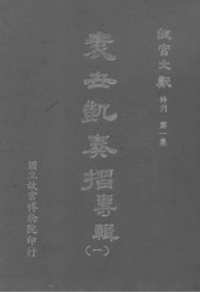 故宮文獻 特刊 第一集
袁世凱奏摺專輯
(一)
國立故宮博物院印行